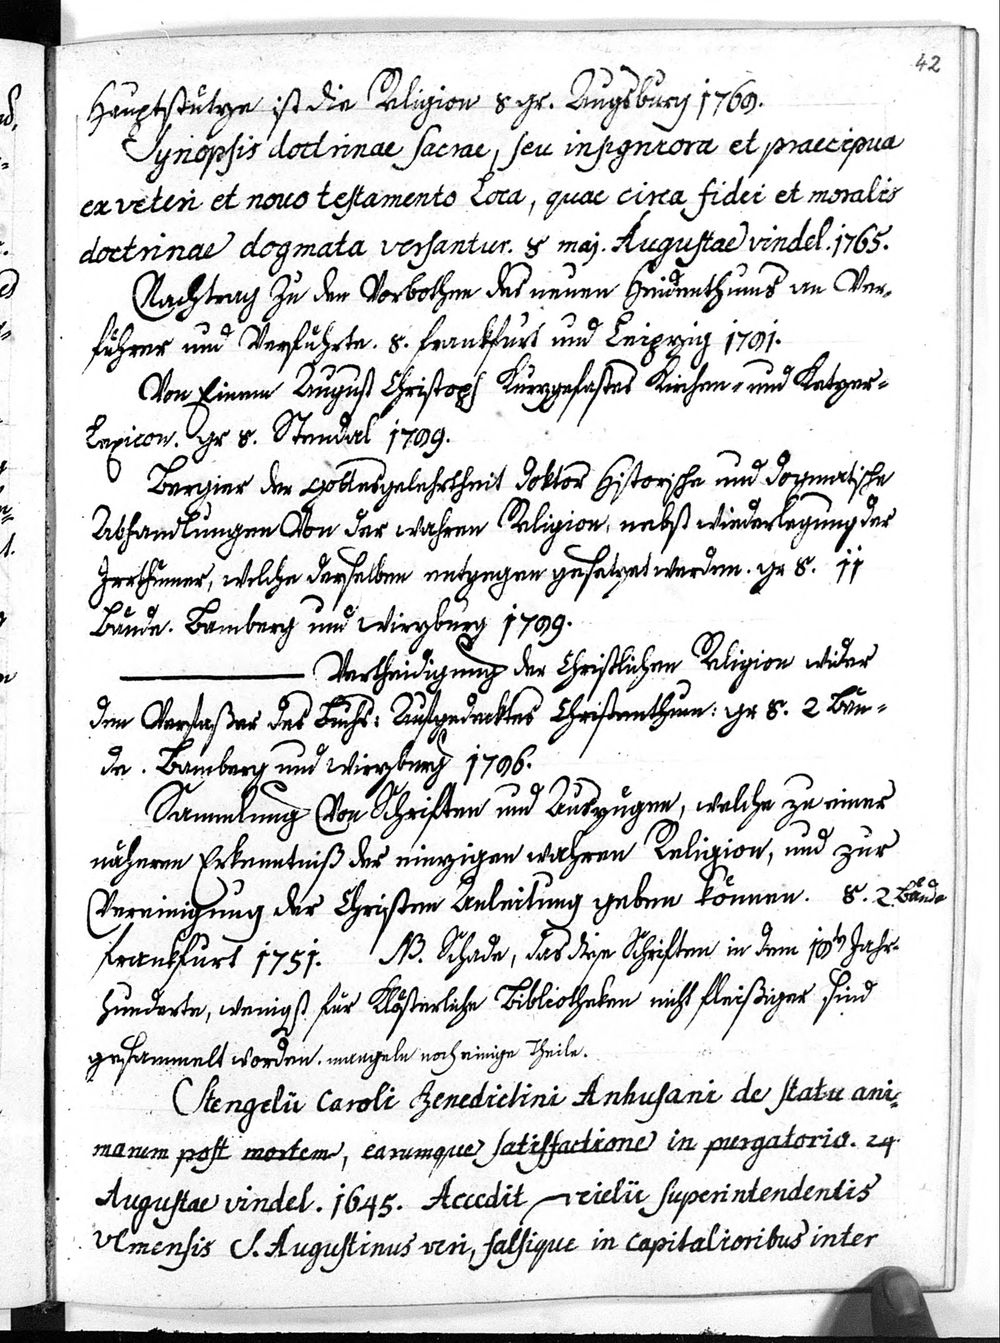 42
Hauptstütze ist die Religion 8 gr. Augsburg 1769.
Synopsis doctrinae sacrae, seu insigniora et praecipua
ex veteri et novo testamento Loca, quae circa fidei et moralis
doctrinae dogmata versantur. 8 maj. Augustae vindel. 1765.
Nachtrag zu den Vorbothen des neuen Heidenthums an Ver-
führer und Verführte. 8. Frankfurt und Leipzig 1791.
Von Einem August Christoph Kurzgefastes Kirchen- und Katzer-
Lexicon. gr 8. Stendal 1799.
Bergier der Gottesgelehrtheit Doktor Historische und dogmatische
Abhandlungen Von der wahren Religion, nebst wiederlegung der
Irrthümer, welche derselben entgegen gesetzet werden. gr 8. 11
Bände. Bamberg und Wirzburg 1799.
Vertheidigung der Christlichen Religion wider
den Verfaßer des Buchs: Aufgedecktes Christenthum: gr 8. 2 Bän-
de. Bamberg und Wirzburg 1796.
Sammlung Von Schriften und Auszügen, welche zu einer
näheren Erkenntniß der einzigen wahren Religion, und zur
Vereinigung der Christen Anleitung geben können. 8. 2 Bände
Frankfurt 1751. NB. Schade, das diese Schriften in dem Jahr-
hunderte, wenigst für Klösterliche Bibliotheken nicht fleißiger sind
gesammelt worden. mangeln noch einige Theile.
Stengelii Caroli Benedictini Anhusani de statu ani-
marum post mortem, earumque satisfactione in purgatorio. 24
Augustae vindel. 1645. Acccdit superintendentis
Ulmensis S. Augustinus veri, falsique in capitalioribus inter